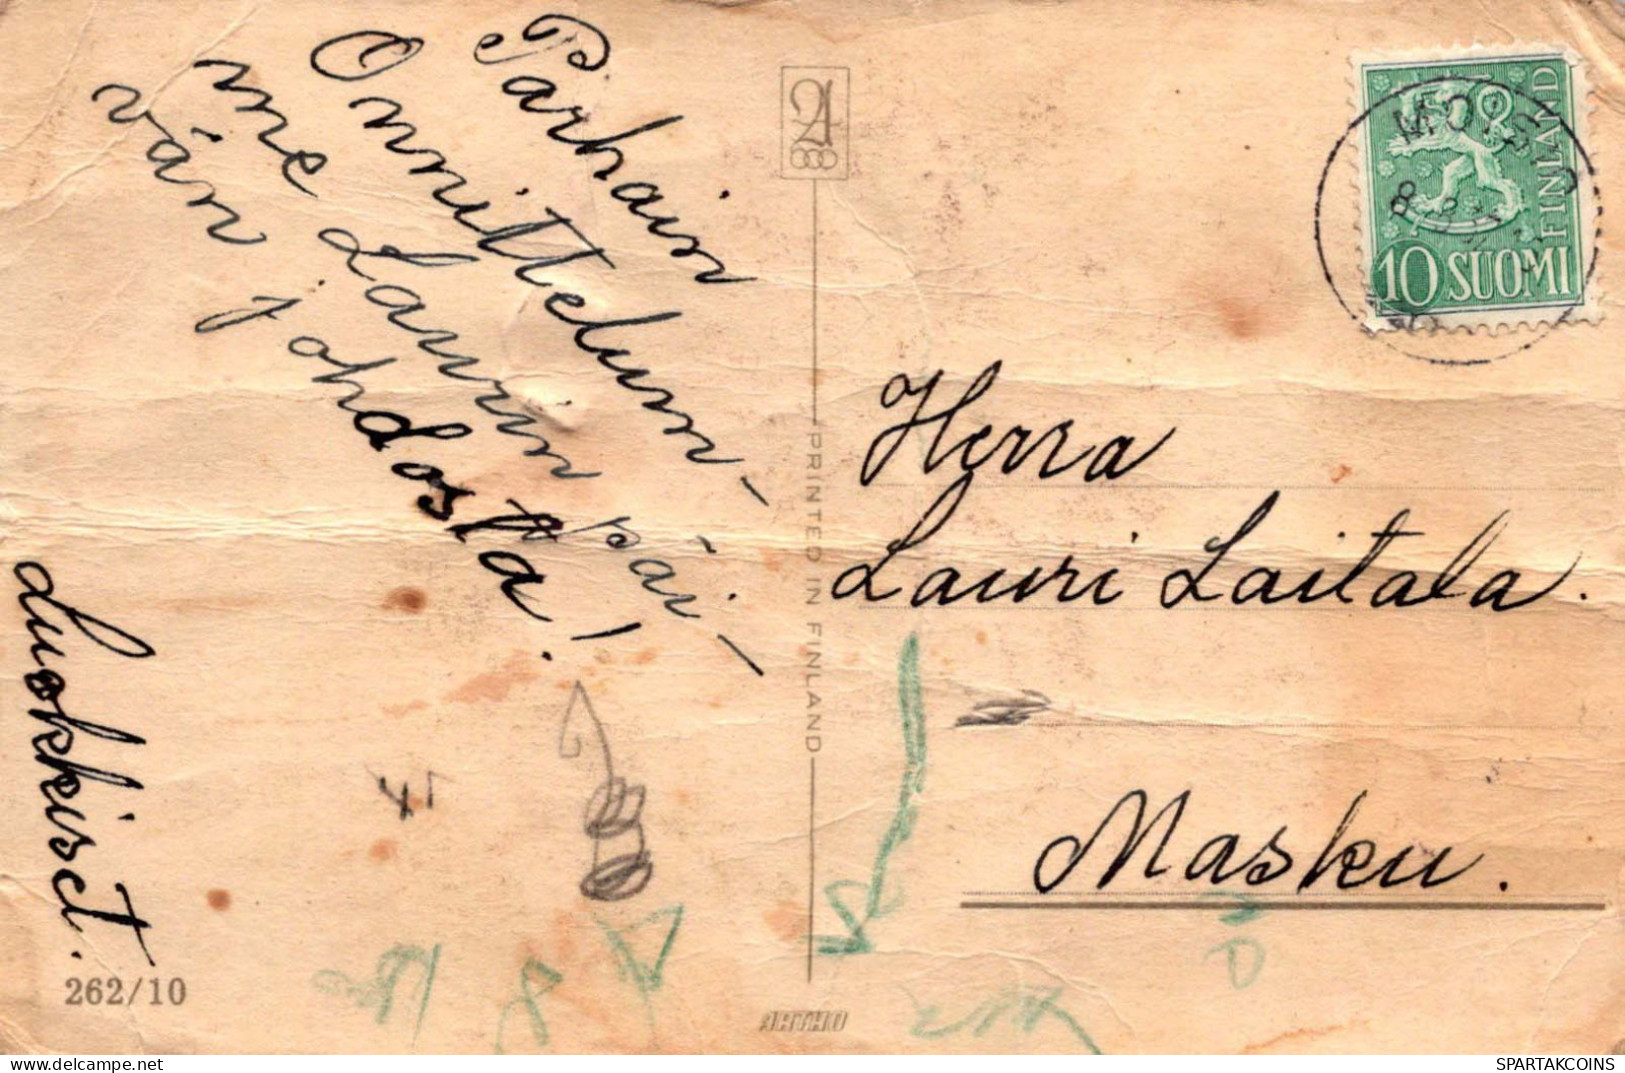 Parhain
Onnittelum-
me Laurin päi-
vän johdosta!
Luokkiset.
262/10
PRINTED IN FINLAND
ARTHO
10 SUOMI
FINLAND
8
Herra
Lauri Laitala.
Masku.
delcampe.net
SPARTAKCOINS